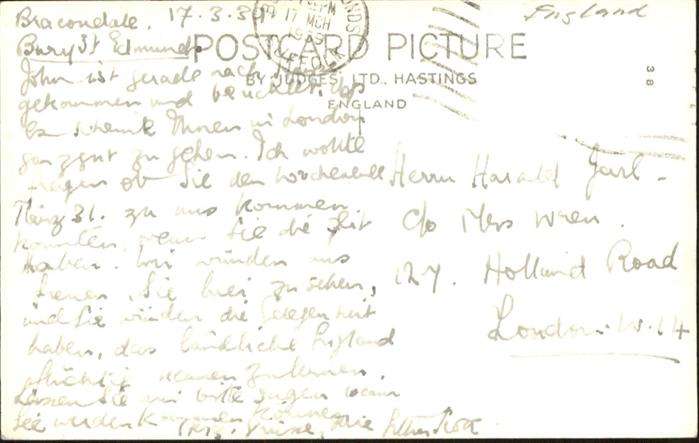 Bracondale. 17.3.39
Bury St Edmunds
John ist gerade nach
gekommen und berichtet, dass
es scheint Ihnen in London
ganz gut zu gehen. Ich wollte
fragen ob Sie den Wochenende
März 31. zu uns kommen
könnten, wenn Sie die Zeit
haben. Wir würden uns
freuen, Sie hier zu sehen,
und Sie würden die Gelegenheit
haben, das ländliche England
flüchtig kennen zu lernen.
Lassen Sie mir bitte sagen wann
Sie werden kommen können.
England
POSTCARD PICTURE
BY JUDGES LTD. HASTINGS
ENGLAND
38
17 MCH
1939
SUFFOLK
Herrn Harald
c/o Mrs Wren.
127. Holland Road
London. W.14